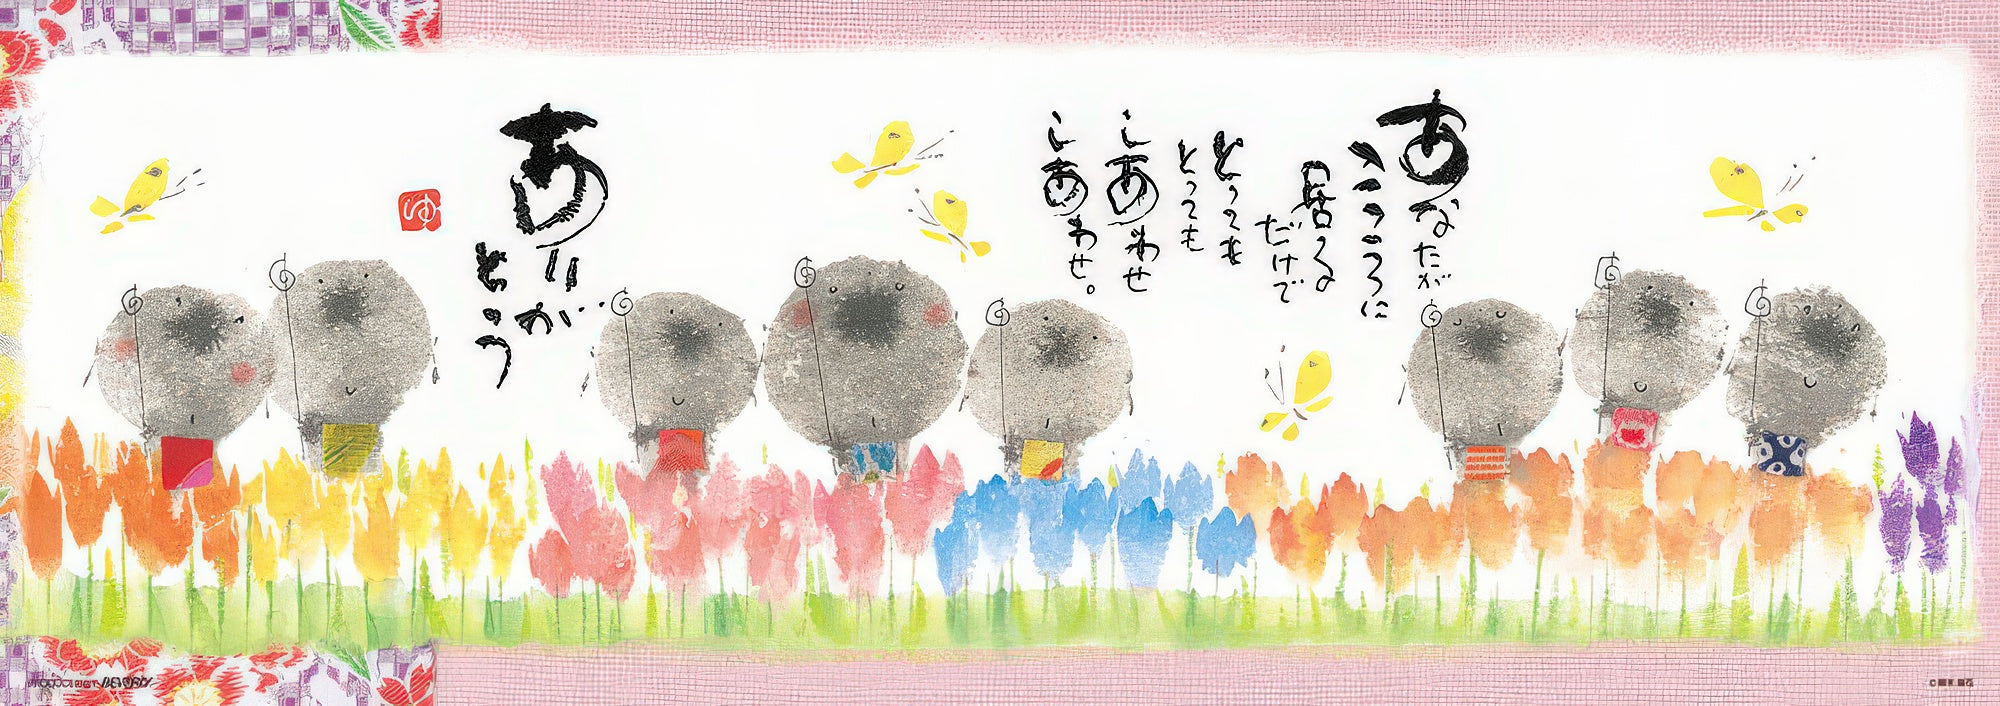 あなたが
こころに
居る
だけで
とっても
とっても
しあわせ
しあわせ。
ありが
とう
ゆ